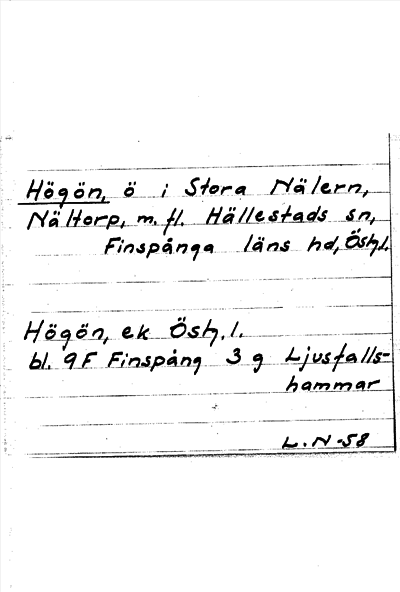 Högön, ö i Stora Nälern,
Nältorp, m. fl. Hällestads sn,
Finspånga läns hd, Östg.l.
Högön, ek Östg.l.
bl. 9F Finspång 3 g Ljusfalls-
hammar
L.N-58